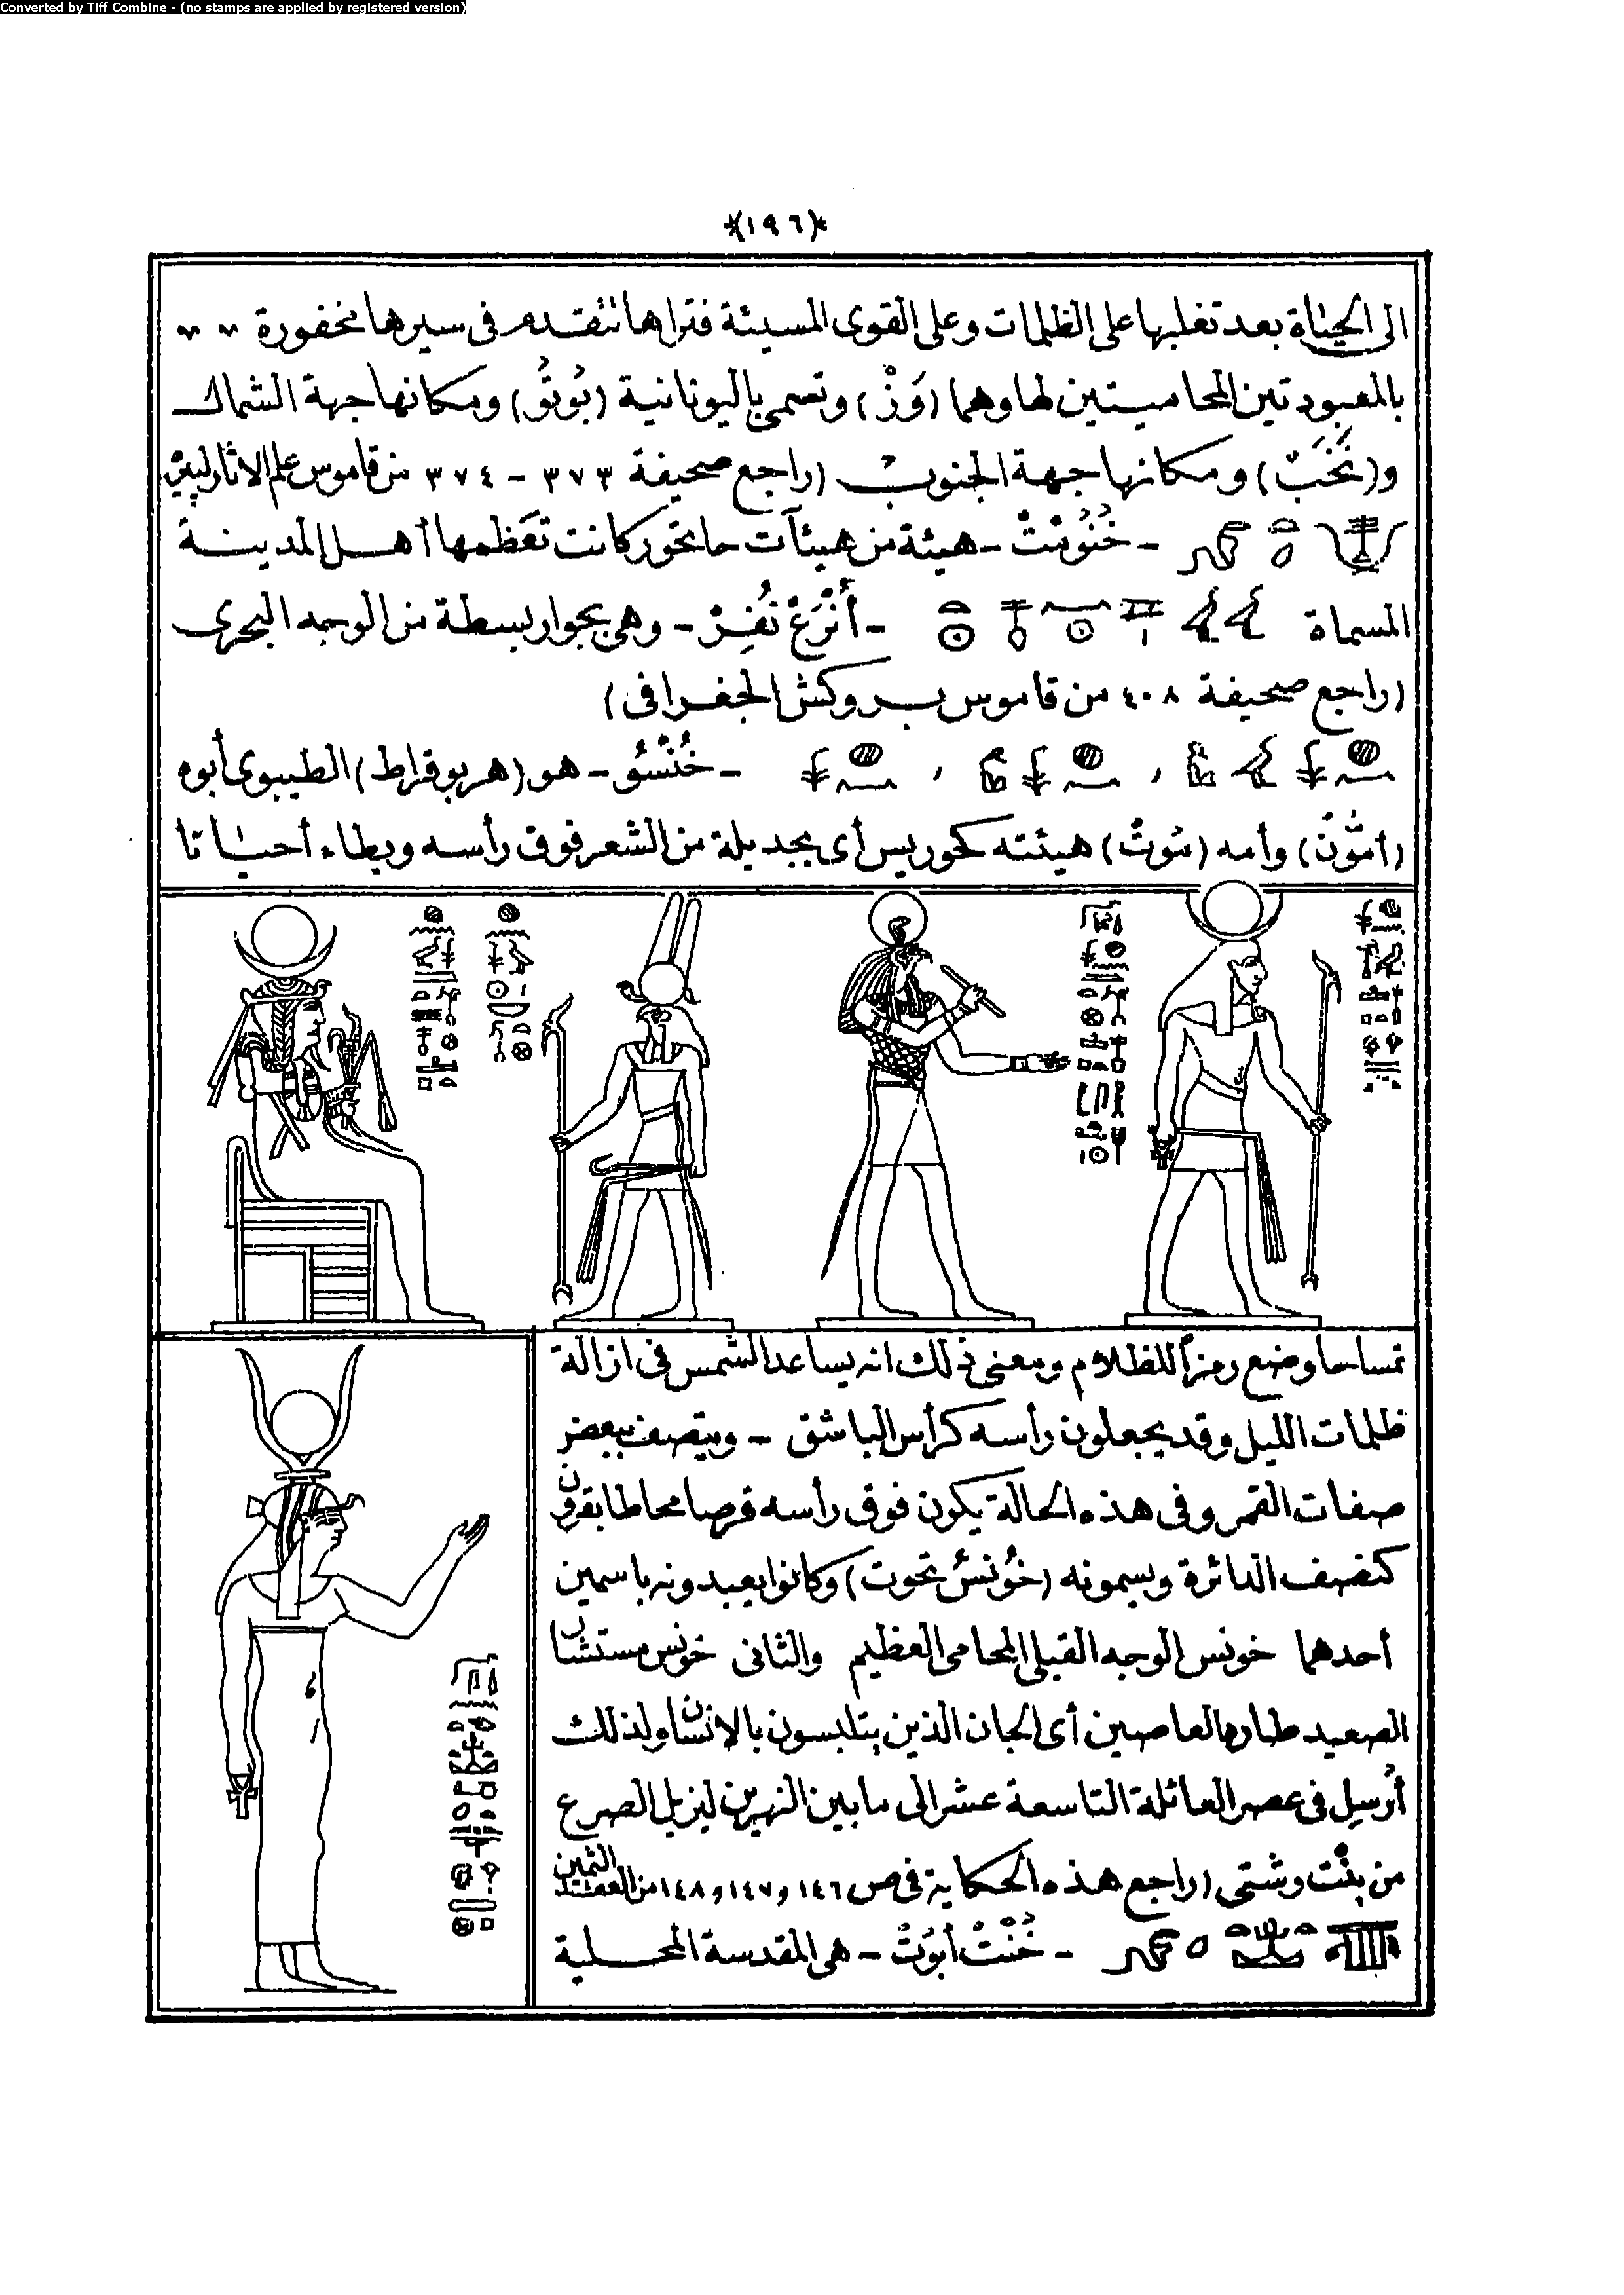 Converted by Tiff Combine - (no stamps are applied by registered version)
*(١٩٦)*
الى الحياة بعد تغلبها على الظلمات وعلى القوى المسيئة فتراها تتقدم فى سيرها مخفورة
بالمعبودتين المحاميتين لها وهما (وَزْ) وتسمى باليونانية (بُوتُو) ومكانها جهة الشمال
و(نَخَبْ) ومكانها جهة الجنوب (راجع صحيفة ٣٧٣ – ٣٧٤ من قاموس علم الاثار لبيرّ
– خُنُومْتْ – هيئة من هيئآت حاتحور كانت تعظمها أهل المدينة
المسماة – أُنْرَعْ نُفِرْ – وهى بجوار بسطة من الوجه البحرى
(راجع صحيفة ٤٠٨ من قاموس بروكش الجغرافى)
– خُنْسُو – هو (هربوقراط) الطيبوى أبوه
(أمُّونْ) وأمه (مُوتْ) هيئته كحوريس أى بجديلة من الشعر فوق رأسه ويطاء أحيانا
تمساحا وضع رمزاً للظلام ومعنى ذلك انه يساعد الشمس فى ازالة
ظلمات الليل وقد يجعلون رأسه كرأس الباشق – ويتصف ببعض
صفات القمر وفى هذه الحالة يكون فوق رأسه قرصا محاطا بقرون
كنصف الدائرة ويسمونه (خُونْسُ تحوت) وكانوا يعبدونه باسمين
أحدهما خونس الوجه القبلى المحامى العظيم والثانى خونس مستشار
الصعيد طارد العاصين أى الجان الذين يتلبسون بالانسان ولذلك
أرسل فى عصر العائلة التاسعة عشر الى ما بين النهرين ليزيل الصرع
من بِنْت رشتى (راجع هذه الحكاية فى ص ١٤٦ و١٤٧ و١٤٨ من العقد الثمين
– خُنْتْ أبُوتْ – هى المقدسة المحلية